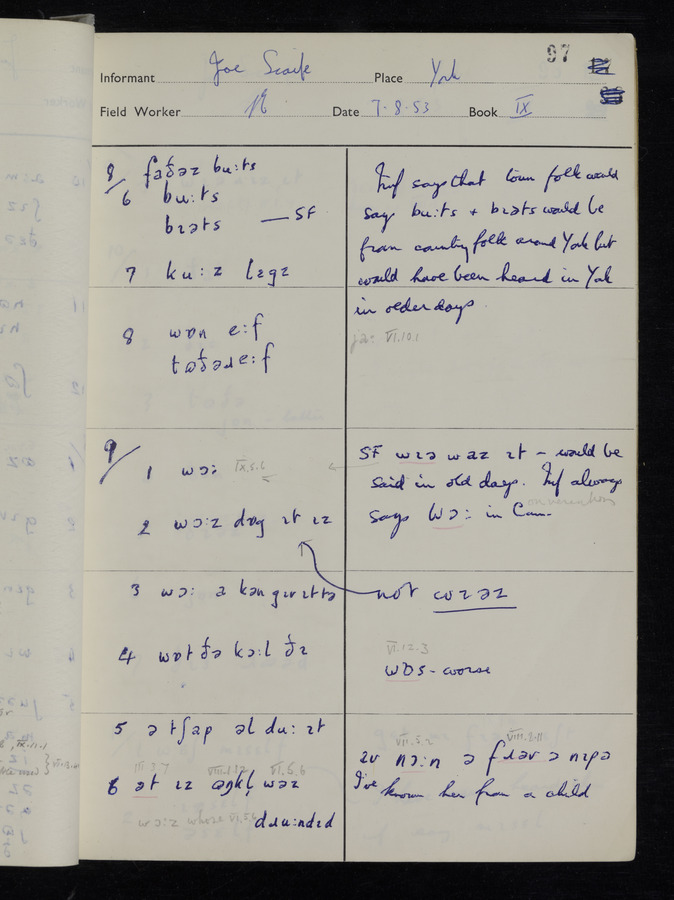 97
Informant Joe Scaife Place York
Field Worker Date 7-8-53 Book IX
8/6 faðəz bu:ts
bu:ts
bɪəts — SF
7 ku:z lɛgz
8 wɒn e:f
təðəɹ e:f
Inf says that town folk would
say bu:ts + bɪəts would be
from country folk around York but
would have been heard in York
in older days.
jə: VI.10.1
9/1 wɔ: IX.5.6
2 wɔ:z dɒg ɪt ɪz
SF wɪə waz ɪt – would be
said in old days. Inf always
conversation
says wɔ: in Con-
3 wɔ: ə kən gɪv ɪt tə
not wɪəz
4 wɒt ðə kɔ:l ðɪ
VI.12.3
wɒs - worse
5 ə tʃap əl du: ɪt
6 ət ɪz ʊŋkl wəz
III.3.7 VIII.1.12 VI.5.6
wɔ:z whose VI.5.6 dɹu:ndɪd
VII.5.2 VIII.2.11
av nɔ:n ə fɹəv ə nɪpə
I've known her from a child